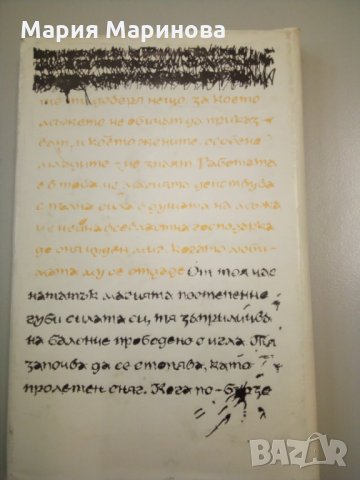 Мария Маринова
ще ти доверя нещо, за което
мъжете не обичат да приказ-
ват, и което жените, особено
младите - не знаят. Работата
е в това, че магията действува
с тъмна сила в душата на мъжа
и е нейна всевластна господарка
до оня чуден миг, когато люби-
мата му се отдаде. От тоя час
нататък магията постепенно
губи силата си, тя заприличва
на балонче прободено с игла. Тя
започва да се стопява, като
пролетен сняг. Кога по-бързо
BAZAR
bg